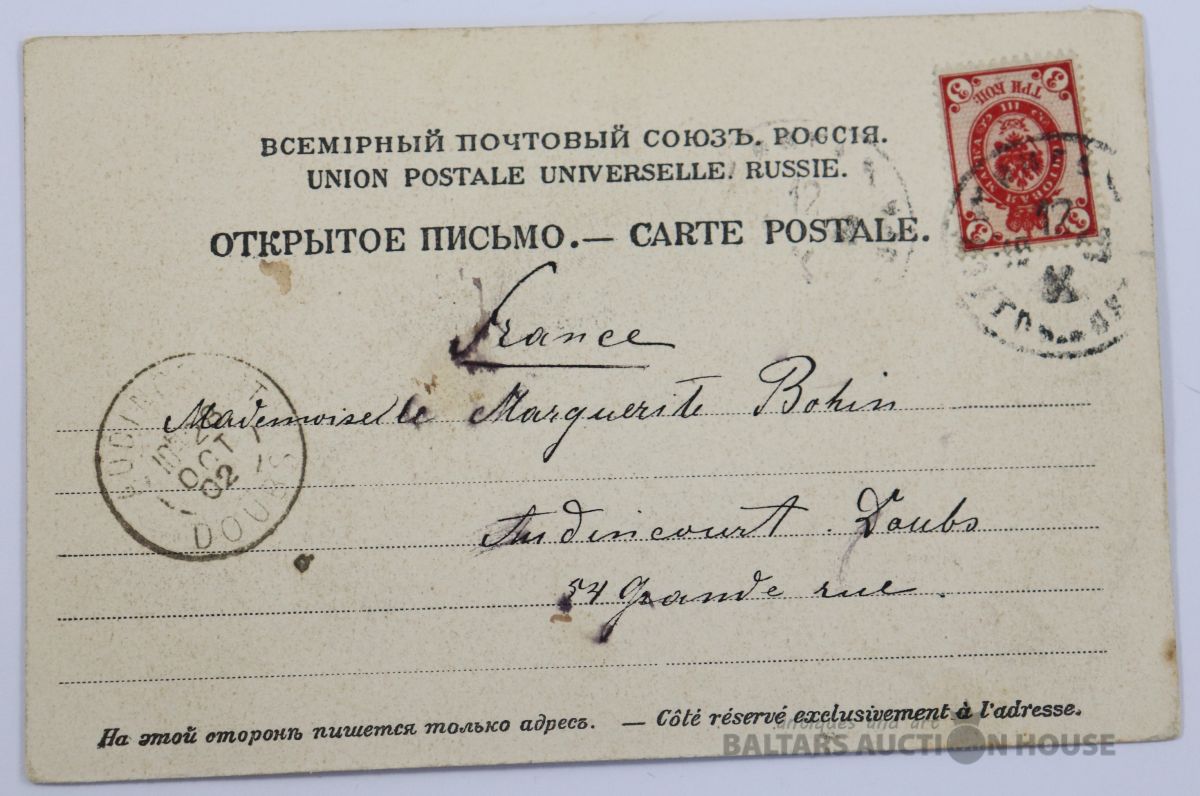 ВСЕМІРНЫЙ ПОЧТОВЫЙ СОЮЗЪ. РОССІЯ.
UNION POSTALE UNIVERSELLE. RUSSIE.
ОТКРЫТОЕ ПИСЬМО.— CARTE POSTALE.
3 3
ТРИ КОП.
3 3
12
12
France
Mademoiselle Marguerite Bohin
OCT
02
DOUBS
Audincourt. Doubs
54 Grande rue.
На этой сторонѣ пишется только адресъ. — Côté réservé exclusivement à l'adresse.
antiques and art
BALTARS AUCTION HOUSE